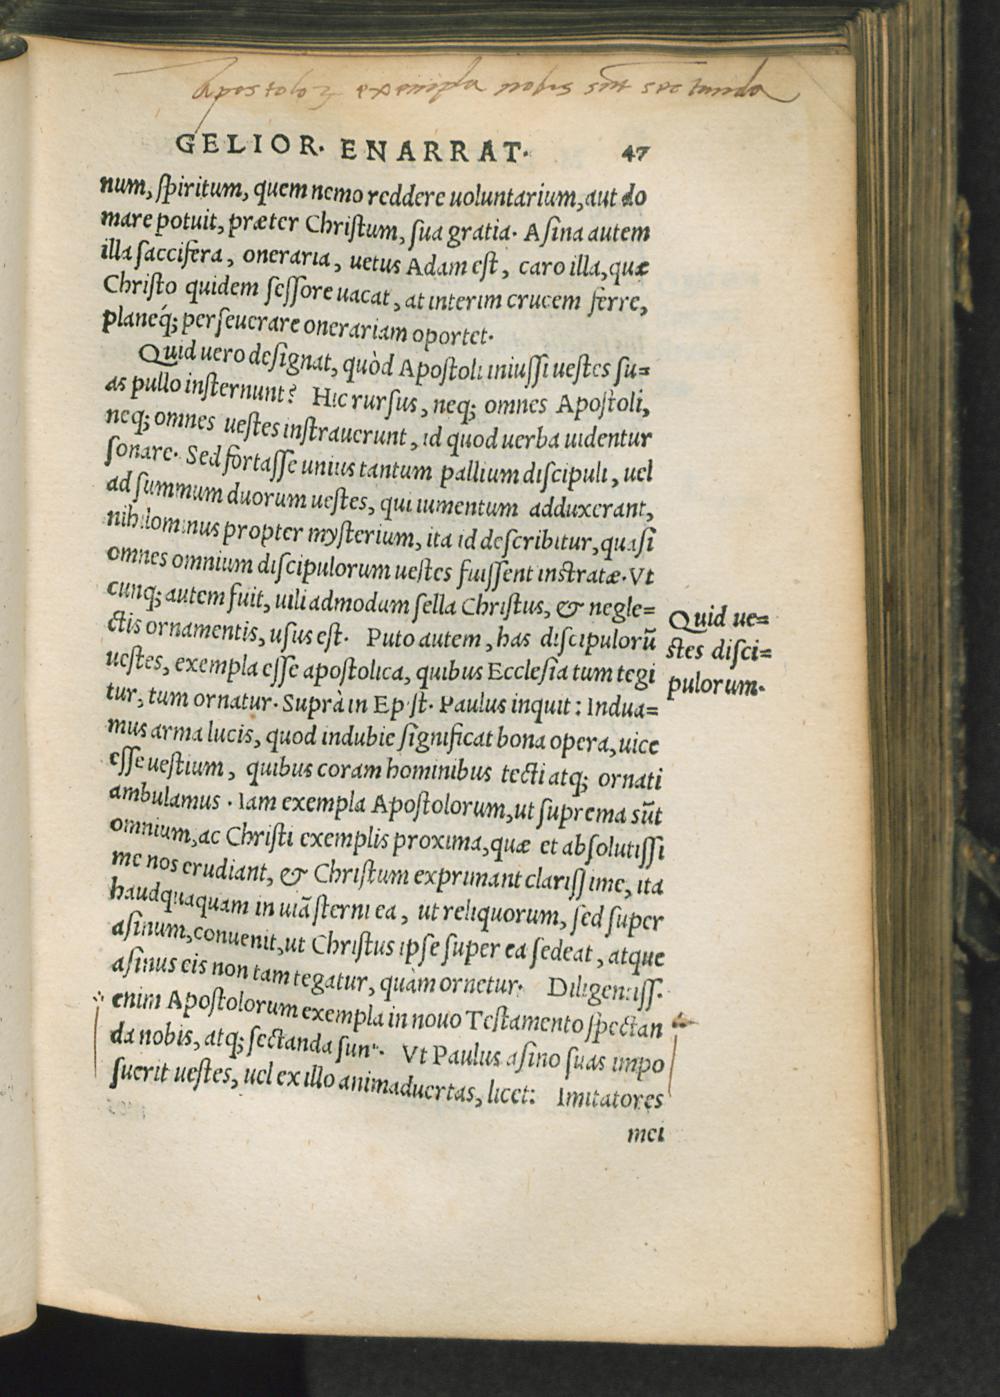 Apostoloꝝ exempla nobis sūt sectanda
GELIOR. ENARRAT. 47
num, spiritum, quem nemo reddere uoluntarium, aut do
mare potuit, præter Christum, sua gratia. Asina autem
illa saccifera, oneraria, uetus Adam est, caro illa, quæ
Christo quidem sessore uacat, at interim crucem ferre,
planeq́; perseuerare onerariam oportet.
Quid uero designat, quòd Apostoli iniussi uestes su=
as pullo insternunt? Hic rursus, neq; omnes Apostoli,
neq; omnes uestes instrauerunt, id quod uerba uidentur
sonare. Sed fortasse unius tantum pallium discipuli, uel
ad summum duorum uestes, qui iumentum adduxerant,
nihilominus propter mysterium, ita id describitur, quasi
omnes omnium discipulorum uestes fuissent instratæ. Vt
cunq; autem fuit, uili admodum sella Christus, & negle=
ctis ornamentis, usus est. Puto autem, has discipulorũ
uestes, exempla esse apostolica, quibus Ecclesia tum tegi
tur, tum ornatur. Suprà in Epist. Paulus inquit: Indua=
mus arma lucis, quod indubie significat bona opera, uice
esse uestium, quibus coram hominibus tecti atq; ornati
ambulamus. Iam exempla Apostolorum, ut suprema sũt
omnium, ac Christi exemplis proxima, quæ et absolutissi
me nos erudiant, & Christum exprimant clarissime, ita
haudquaquam in uiã sterni ea, ut reliquorum, sed super
asinum, conuenit, ut Christus ipse super ea sedeat, atque
asinus eis non tam tegatur, quàm ornetur. Diligentiss.
enim Apostolorum exempla in nouo Testamento spectan
da nobis, atq; sectanda sunt. Vt Paulus asino suas impo
suerit uestes, uel ex illo animaduertas, licet: Imitatores
mei
Quid ue=
stes disci=
pulorum.